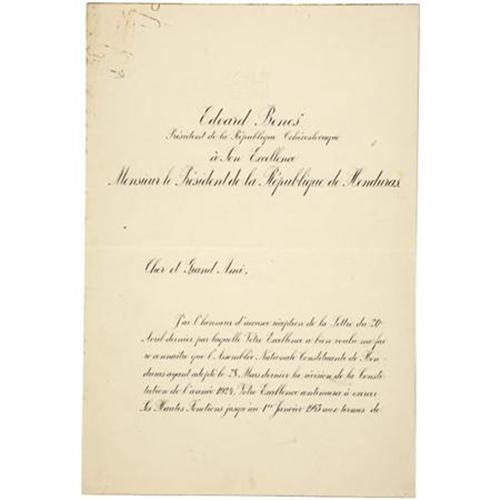 Edvard Beneš
Président de la République Tchécoslovaque
à Son Excellence
Monsieur le Président de la République de Honduras
Cher et Grand Ami,
J'ai l'honneur d'accuser réception de la Lettre du 20
Avril dernier par laquelle Votre Excellence a bien voulu me fai-
re connaître que l'Assemblée Nationale Constituante de Hon-
duras ayant adopté le 28 Mars dernier la révision de la Consti-
tution de l'année 1924, Votre Excellence continuera à exercer
Ses Hautes Fonctions jusqu'au 1er Janvier 1943 aux termes de